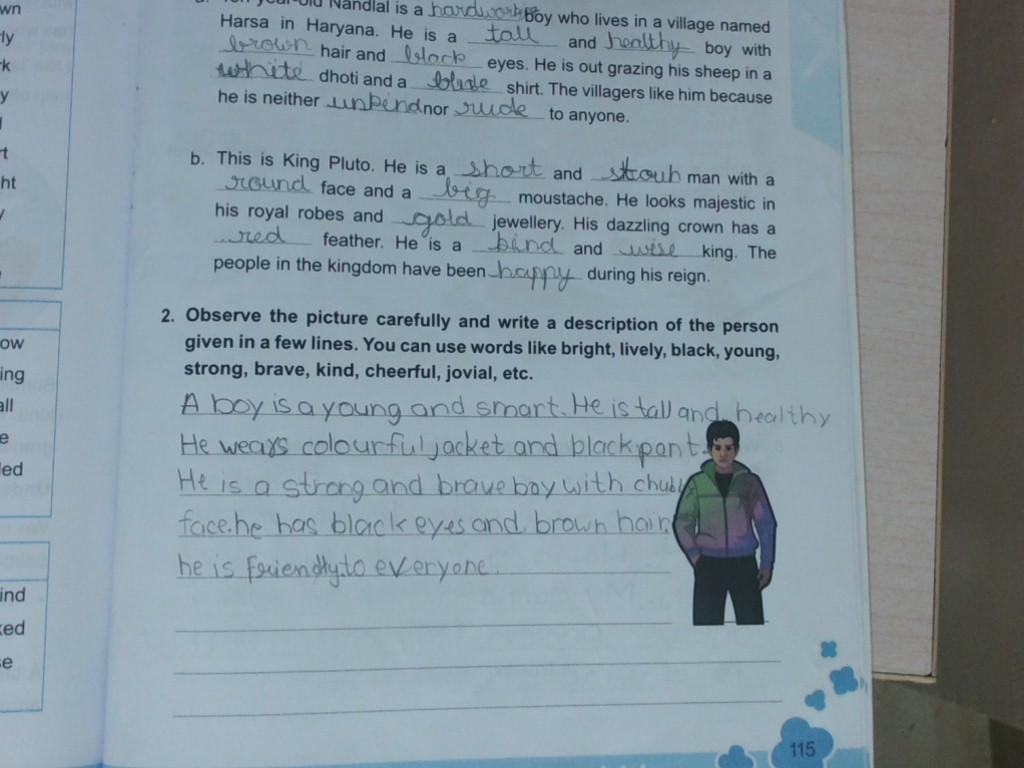 wn
rly
k
y
rt
ht
y
ow
ing
all
e
led
ind
ked
se
Nandlal is a hardworking boy who lives in a village named
Harsa in Haryana. He is a tall and healthy boy with
brown hair and black eyes. He is out grazing his sheep in a
white dhoti and a shirt. The villagers like him because
he is neither unkind nor rude to anyone.
b. This is King Pluto. He is a short and man with a
round face and a big moustache. He looks majestic in
his royal robes and gold jewellery. His dazzling crown has a
red feather. He is a kind and wise king. The
people in the kingdom have been happy during his reign.
2. Observe the picture carefully and write a description of the person
given in a few lines. You can use words like bright, lively, black, young,
strong, brave, kind, cheerful, jovial, etc.
A boy is a young and smart. He is tall and healthy
He wears colourful jacket and black pant.
He is a strong and brave boy with chubby
face. he has black eyes and brown hair
he is friendly to everyone.
115